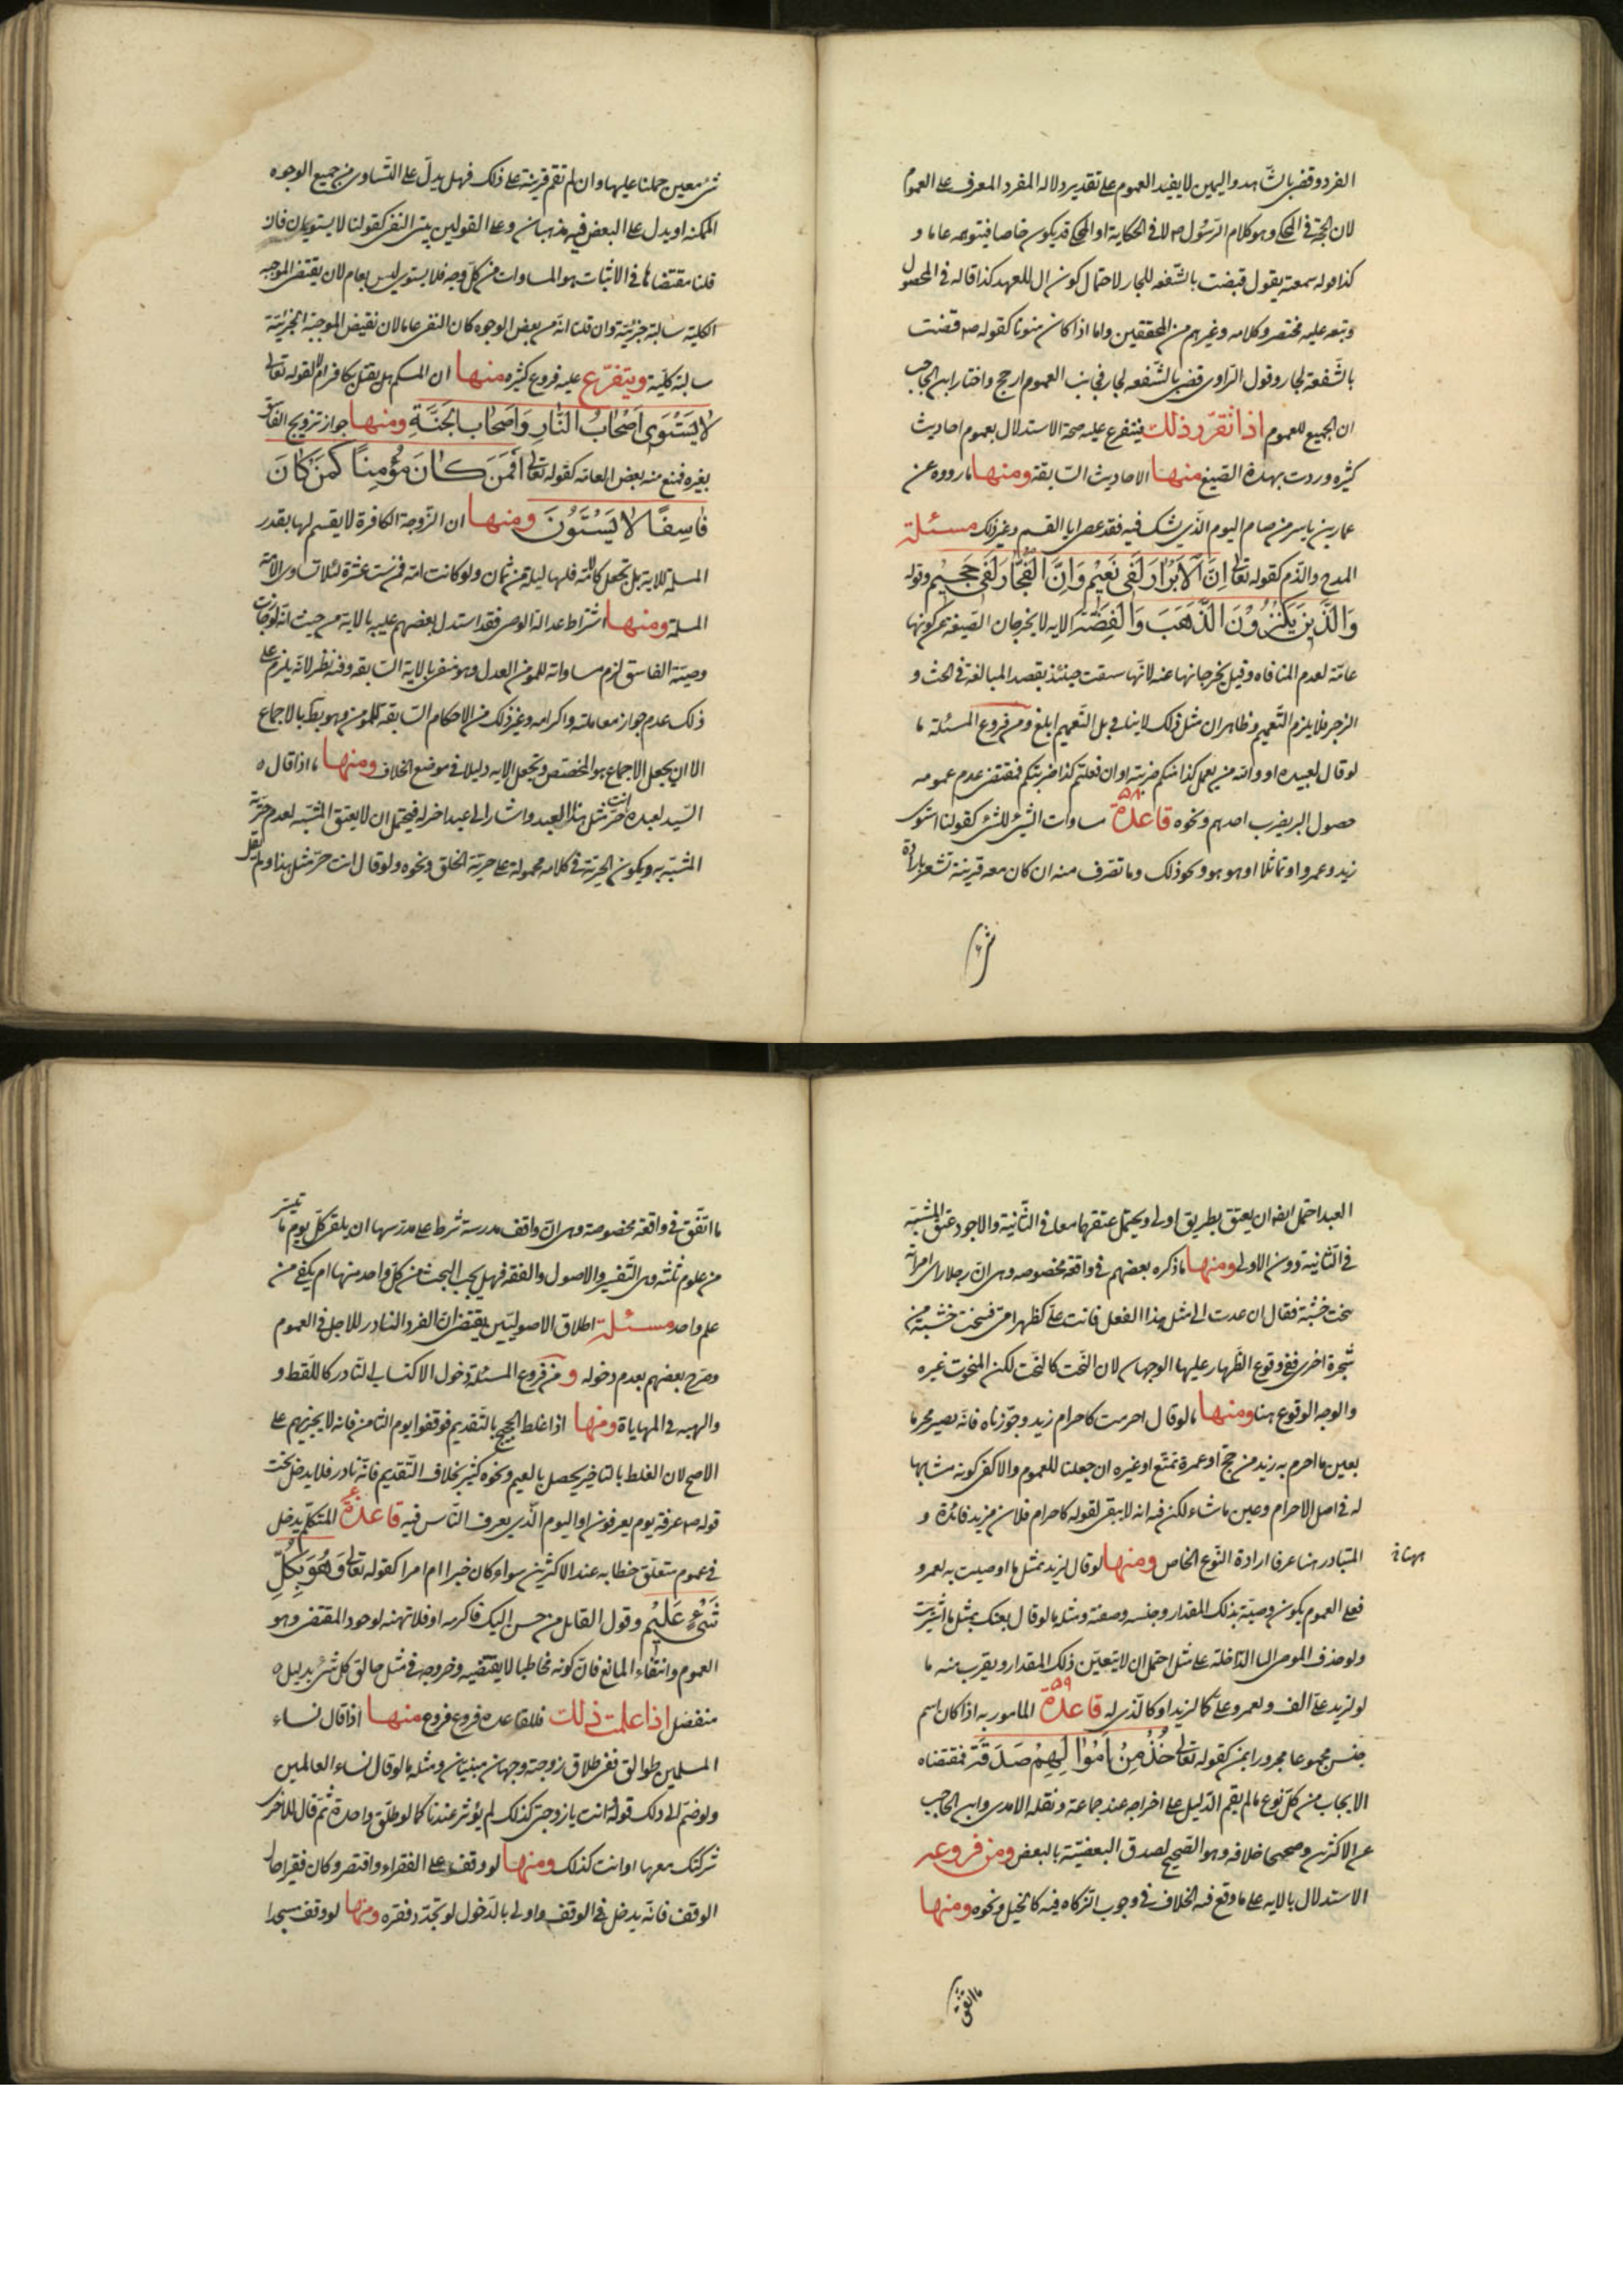 الفرد وقضى بالشّاهد واليمين لا يفيد العموم على تقدير دلاله المفرد المعرف على العموم
لان الحجّة فى المحكى وهو كلام الرّسول ص لا فى الحكاية او المحكى قد يكون خاصا فيتوهمه عاما و
كذا قوله سمعته يقول قضيت بالشّفعه للجار لاحتمال كون ال للعهد كذا قاله فى المحصول
وتبعه عليه مختصر و كلامه وغيرهم من المحققين واما اذا كان منونا كقوله ص قضيت
بالشّفعة لجار وقول الراوى قضى بالشّفعه لجار فجانب العموم ارجح واختار ابن الحاجب
ان الجميع للعموم اذا تقرّر ذلك فيتفرع عليه صحة الاستدلال بعموم احاديث
كثيره وردت بهذه الصّيغ منها الاحاديث السّابقة ومنها ما رووه عن
عمار بن ياسر من صام اليوم الذّى يشك فيه فقد عصى ابا القسم وغير ذلك مسئلة
المدح والذّم كقوله تعالى اِنَّ الْاَبْرٰارَ لَفى نَعيْمٍ وَاِنَّ الْفُجّٰارَ لَفى جَحيْمٍ وقوله
وَالَّذينَ يَكْنِزُوْنَ الذَّهَبَ وَالْفِضَّةَ الايه لا يخرجان الصّيغه عن كونها
عامّة لعدم المنافاه وقيل يخرجانها عنه لانّها سيقت حينئذ بقصد المبالغة فى الحث و
الزجر فلا يلزم التّعميم وظاهر ان مثل ذلك لا ينافى بل التّعميم ابلغ ومن فروع المسئلة ما
لو قال لعبيده او والله من يعمل كذا منكم ضربته او ان فعلتم كذا ضربتكم فمقتضى عدم عمومه
حصول البر بضرب احدهم ونحوه قاعدة ٥٨ مساوات الشّئ للشّئ كقولنا استوى
زيد وعمرو او تماثلا او هو هو ونحو ذلك وما تصّرف منه ان كان معه قرينة تشعر بارادة
شئ
شئ معين حملنا عليها وان لم تقم قرينة على ذلك فهل يدلّ على التّساوى من جميع الوجوه
الممكنه او يدل على البعض فيه مذهبان وعلى القولين يبتنى النفى كقولنا لا يستويان فان
قلنا مقتضاها فى الاثبات هو المساوات من كلّ وجه فلا يستوى ليس بعام لان نقيض الموجبه
الكليّه سالبة جزئيّة وان قلنا انّه من بعض الوجوه كان النفى عاما لان نقيض الموجبة الجزئيّة
سالبة كليّة ويتفرّع عليه فروع كثيره منها ان المسلم هل يقتل بكافر ام لا لقوله تعالى
لٰا يَسْتَوى اَصْحٰابُ النّٰارِ وَاَصْحٰابُ الْجَنَّةِ ومنها جواز تزويج الفاسق
بغيره فمنع منه بعض العامّه كقوله تعالى اَفَمَنْ كٰانَ مُؤْمِنًا كَمَنْ كٰانَ
فٰاسِقًا لٰا يَسْتَوُونَ ومنها ان الزّوجة الكافرة لا يقسم لها بقدر
المسلمة للايه بل تجعل كالامه فلها ليلة من ثمان ولو كانت امة فمن ست عشرة لئلا تساوى الامة
المسلمة ومنها اشتراط عدالة الوصى فقد استدل بعضهم عليه بالاية من حيث انّه لو جازت
وصيّة الفاسق لزم مساواته للمؤمن العدل وهو منفى بالاية السّابقه وفيه نظر لانّه يلزم على
ذلك عدم جواز معاملته واكرامه وغير ذلك من الاحكام السّابقه للمؤمن وهو بط بالاجماع
الا ان يجعل الاجماع هو المخصّص وتجعل الايه دليلا فى موضع الخلاف ومنها ما اذا قال ه
السّيد لعبده انت حرّ مثل هذا العبد واشار الى عبد اخر له فيحتمل ان لا يعتق المشبّه لعدم حرّية
المشبّه به ويكون الحريّة فى كلامه محمولة على حريّة الخلق ونحوه ولو قال انت حرّ مثل هذا ولم يقل
العبد احتمل ايضه ان يعتق بطريق اولى ويحتمل عتقهما معا فى الثّانية والاجود عتق المشبّه
فى الثّانيه دون الاولى ومنها ما ذكره بعضهم فى واقعة مخصوصه وهى انّ رجلا راى امرأة
تنحت خشبة فقال ان عدت الى مثل هذا الفعل فانت علىّ كظهر امى فنحتت خشبة من
شجرة اخرى ففى وقوع الظّهار عليها الوجهان لان النّحت كالنّحت لكن المنحوت غيره
والوجه الوقوع هنا ومنها ما لو قال احرمت كاحرام زيد وجوّزناه فانّه يصير محرما
بعين ما احرم به زيد من حجّ او عمرة تمتّع او غيره ان جعلنا للعموم والا كفى كونه مشابها
له فى اصل الاحرام وعين ما شاء لكن فيه انه لا يبقى لقوله كاحرام فلان مزيد فائدة و
المتبادر هنا عرفا ارادة النّوع الخاص ومنها لو قال لزيد بمثل ما اوصيت به لعمرو
فعلى العموم يكون وصيّة بذلك المقدار وجنسه وصفته ومثله ما لو قال بعتك بمثل ما اشتريت
ولو حذف الموصى البا الدّاخلة على مثل احتمل ان لا يتعيّن ذلك المقدار ويقرب منه ما
لو لزيد علىّ الف ولعمرو علىّ كما لزيد او كالّذى له قاعدة ٥٩ المامور به اذا كان اسم
جنس مجموعا مجرورا بمن كقوله تعالى خُذْ مِنْ اَمْوٰالِهِمْ صَدَقَةً فمقتضاه
الايجاب من كلّ نوع ما لم يقم الدّليل على اخراجه عند جماعة ونقله الامدى وابن الحاجب
عن الاكثرين وصححا خلافه وهو الصّحيح لصدق البعضيّة بالبعض ومن فروعه
الاستدلال بالايه على ما وقع فيه الخلاف فى وجوب الزّكاه فيه كالخيل ونحوه ومنها
ما اتّفق
ما اتّفق فى واقعة مخصوصة وهى انّ واقف مدرسة شرط على مدرّسها ان يلقى كلّ يوم ما تيسّر
من علوم ثلثه وهى التّفسير والاصول والفقه فهل يجب البحث من كلّ واحد منها ام يكفى من
علم واحد مسئلة اطلاق الاصوليّين يقتضى انّ الفرد النّادر للاجل فى العموم
وصرّح بعضهم بعدم دخوله ومن فروع المسئلة دخول الاكتساب النّادر كاللّقطه و
والهبه فى المهاياة ومنها اذا غلط الحجيج بالتّقديم فوقفوا يوم الثامن فانه لا يجزيهم على
الاصح لان الغلط بالتّاخير يحصل بالغيم ونحوه كثير بخلاف التّقديم فانّه نادر فلا يدخل تحت
قوله ص عرفة يوم يعرفون او اليوم الّذى يعرف النّاس فيه قاعدة المتكلّم يدخل
فى عموم متعلّق خطابه عند الاكثرين سواء كان خبرا ام امرا كقوله تعالى وَهُوَ بِكُلِّ
شَىْءٍ عَليْم وقول القايل من احسن اليك فاكرمه او فلا تهنه لوجود المقتضى وهو
العموم وانتفاء المانع فانّ كونه مخاطبا لا يقتضيه وخروجه فى مثل خالق كل شئ بدليل ه
منفصل اذا علمت ذلك فللقاعده فروع فروع منها اذا قال نساء
المسلمين طوالق ففى طلاق زوجته وجهان مبنيّان ومثله ما لو قال نساء العالمين
ولو ضمّ الى ذلك قوله انت يا زوجتى كذلك لم يؤثر عندنا كما لو طلّق واحدة ثمّ قال للاخرى
شركتك معها او انت كذلك ومنها لو وقف على الفقراء واقتصر وكان فقيرا حال
الوقف فانّه يدخل فى الوقف واولى بالدّخول لو تجدّد فقره ومنها لو وقف مسجدا